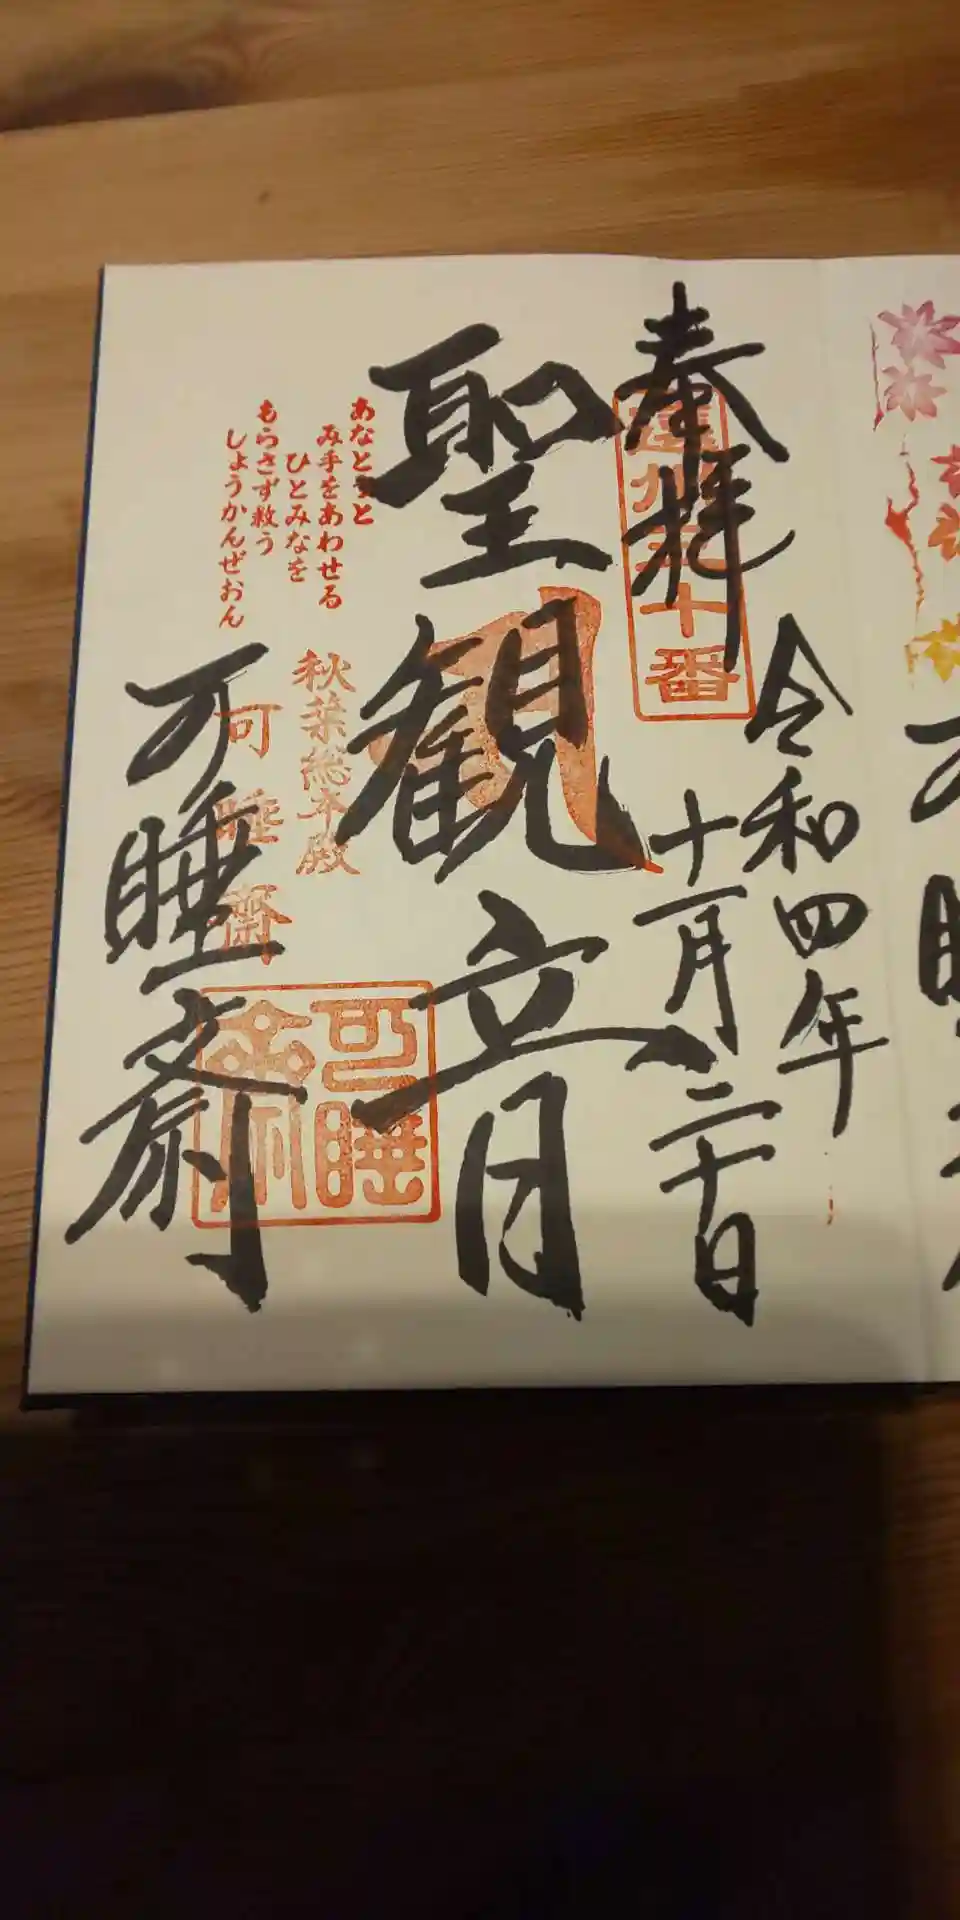 奉拝
遠州三十番
令和四年
十一月二十日
聖観音
あなとうと
み手をあわせる
ひとみなを
もらさず救う
しょうかんぜおん
秋葉総本殿
可睡齋
可睡斎
可睡
斎